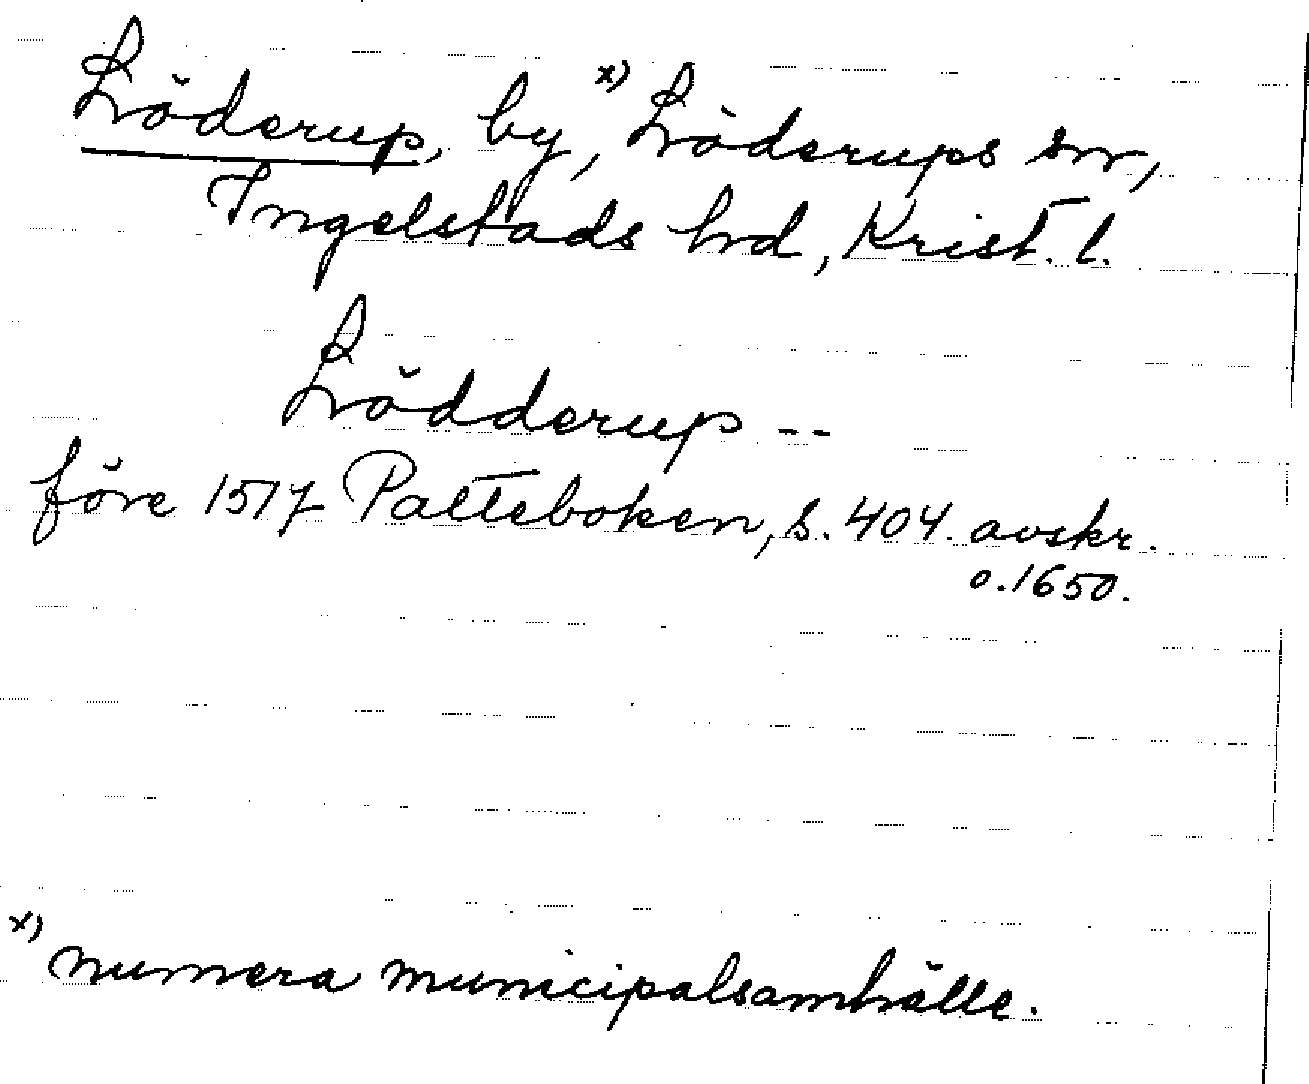 Löderup, by,x) Löderups sn,
Ingelstads hd, Krist. l.
Lödderup --
före 1517 Palteboken, s. 404. avskr.
o. 1650.
x) numera municipalsamhälle.